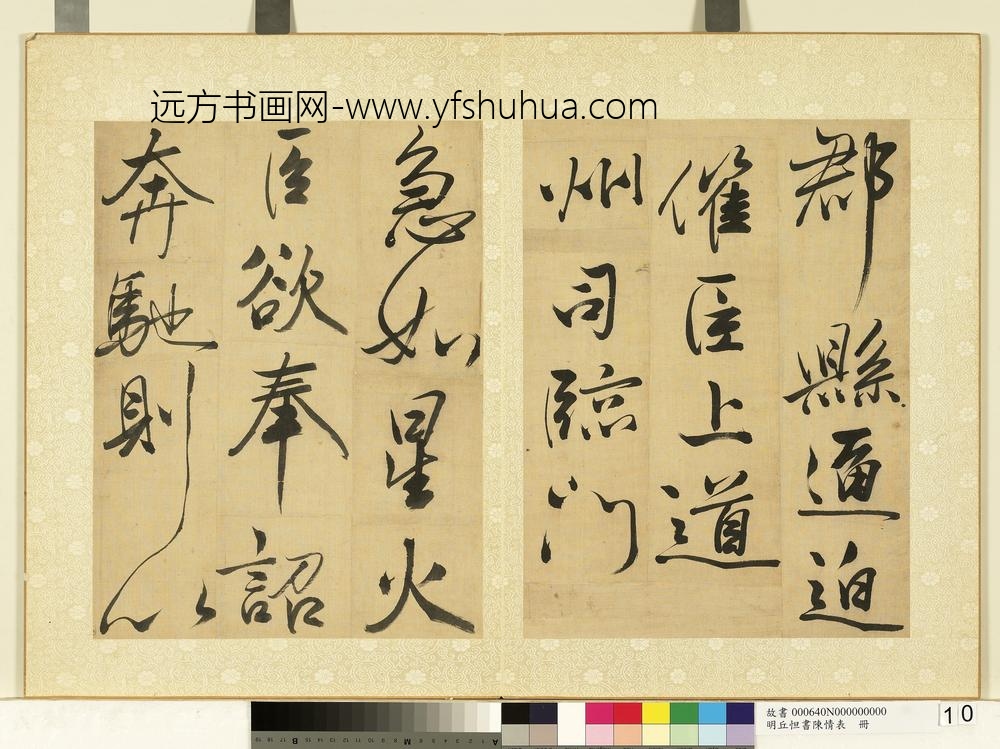 远方书画网-www.yfshuhua.com
郡縣逼迫
催臣上道
州司臨門
急如星火
臣欲奉詔
奔馳則以
故書 000640N000000000
明丘怛書陳情表 冊
10